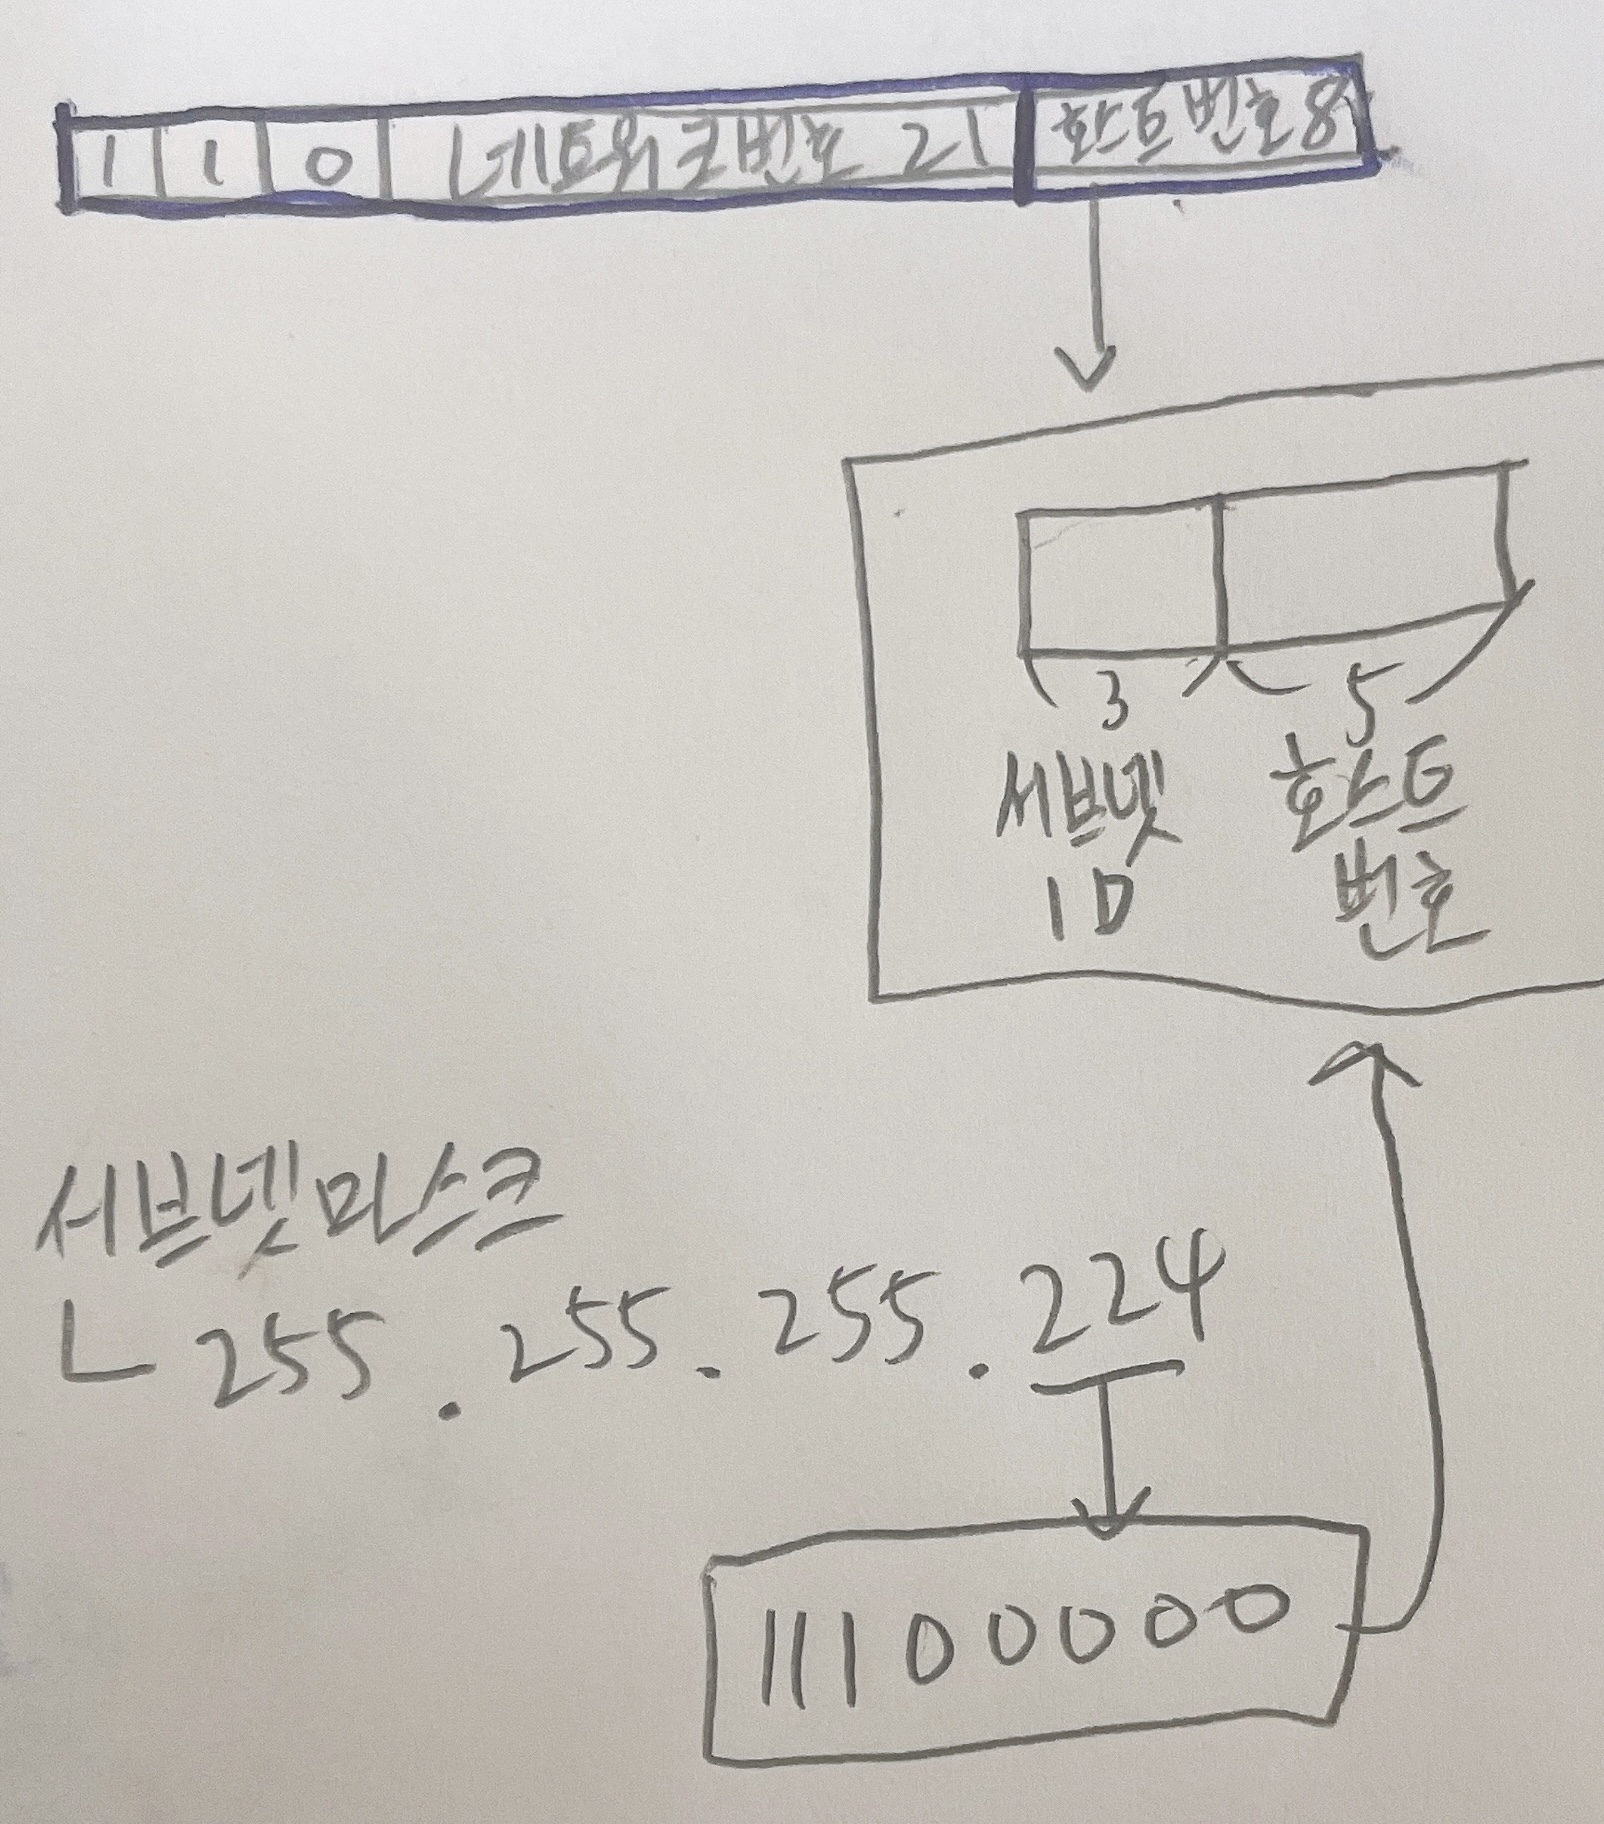 1 1 0 네트워크번호 21 호스트번호 8
3 5
서브넷 호스트
ID 번호
서브넷마스크
255.255.255.224
11100000